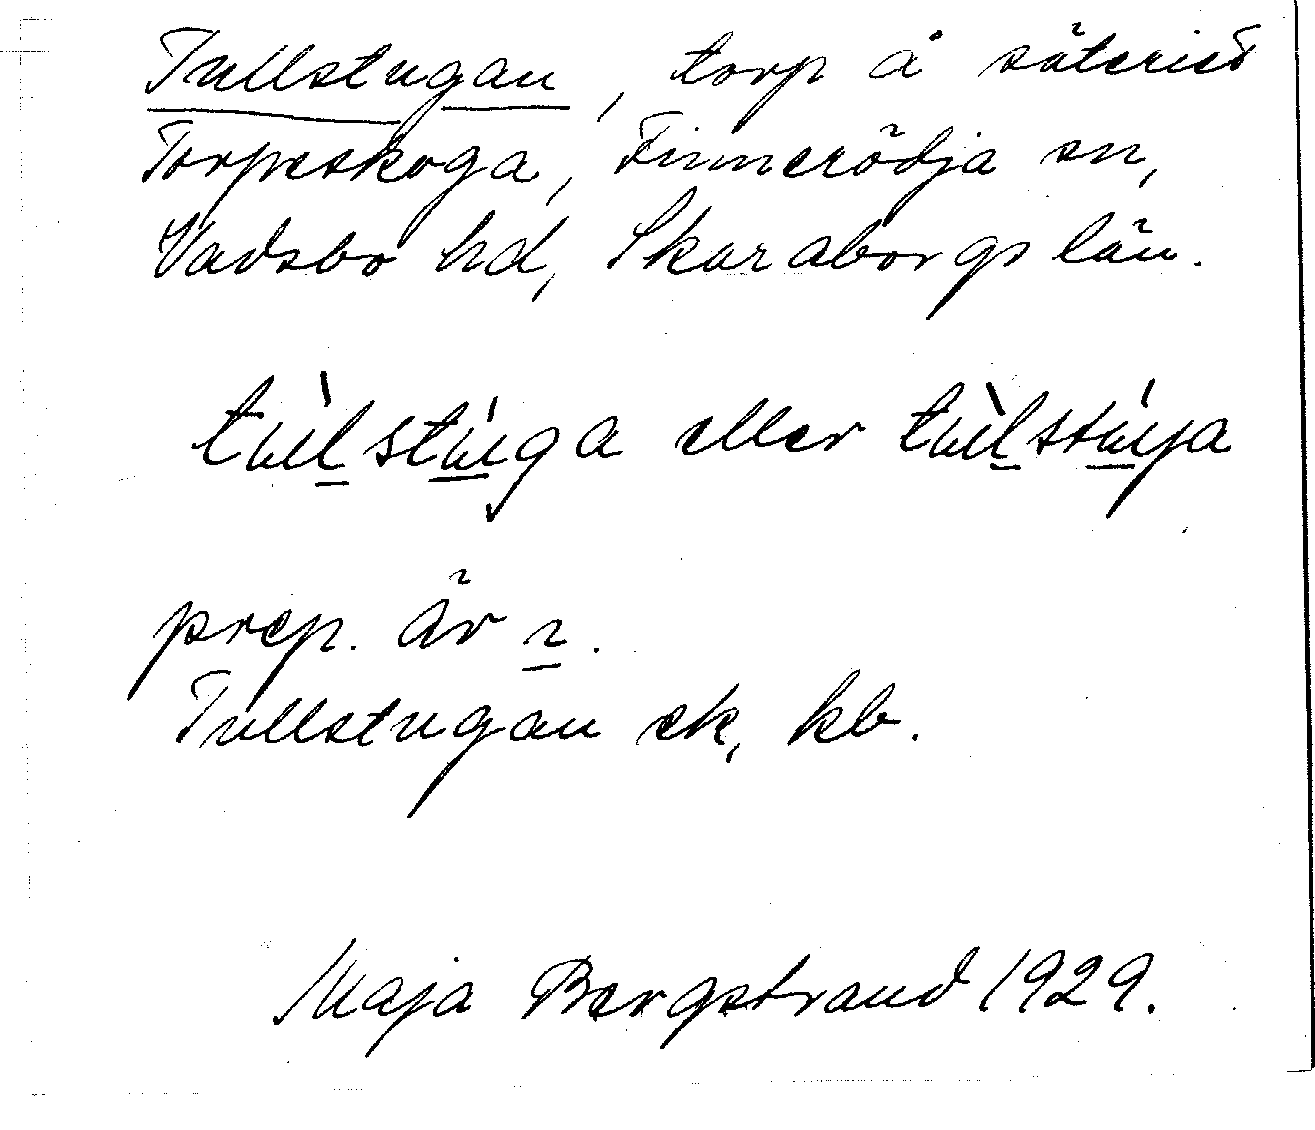 Tullstugan, torp å säteriet
Torpeskoga, Finnerödja sn,
Vadsbo hd, Skaraborgs län.
tùlstúga eller tùlstúja
prep. är ı.
Tullstugan ek, kb.
Maja Bergstrand 1929.